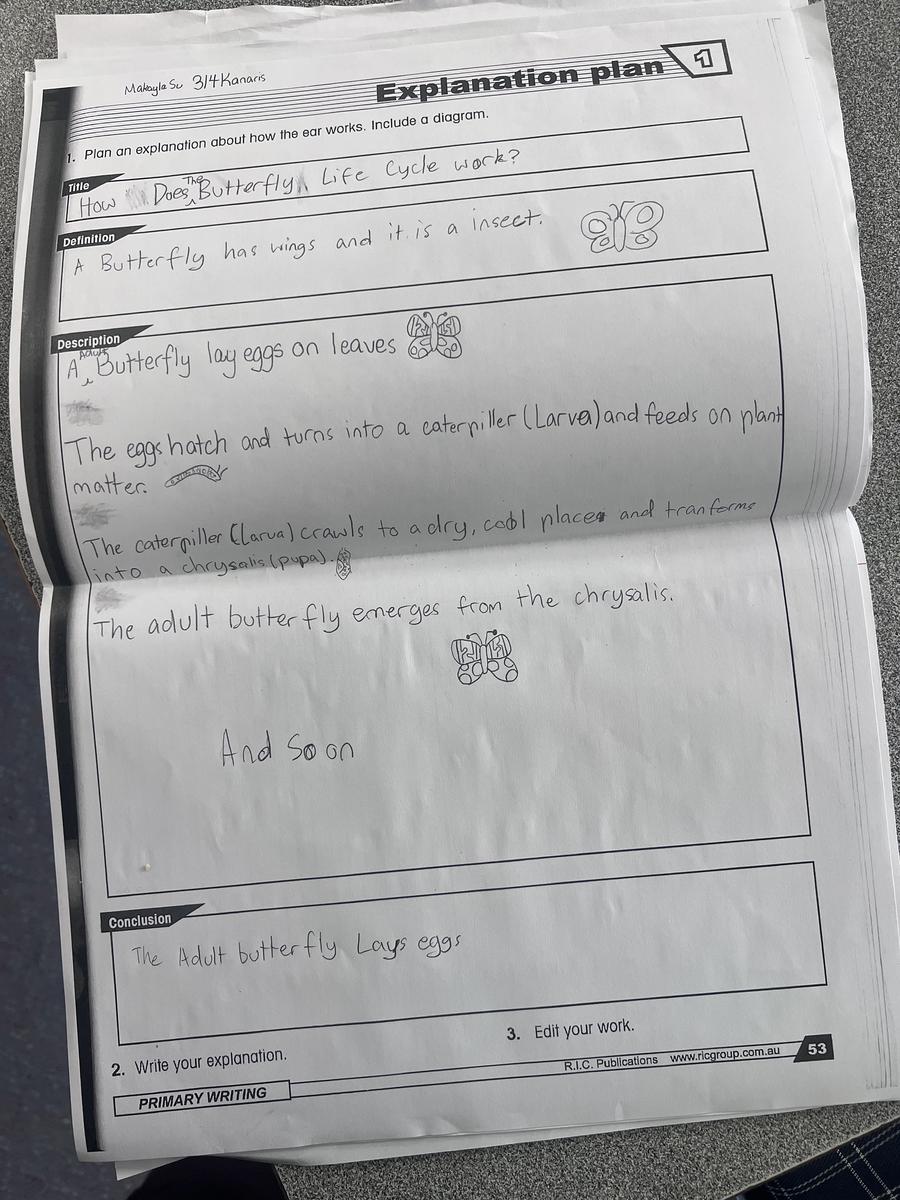 Makayla Su 3/4 Kanaris
Explanation plan 1
1. Plan an explanation about how the ear works. Include a diagram.
Title
How Does The Butterfly Life Cycle work?
Definition
A Butterfly has wings and it is a insect.
Description
A Adult Butterfly lay eggs on leaves
The eggs hatch and turns into a caterpiller (Larva) and feeds on plant
matter.
The caterpiller (Larva) crawls to a dry, cool place and tranforms
into a chrysalis (pupa).
The adult butterfly emerges from the chrysalis.
And So on
Conclusion
The Adult butterfly Lays eggs
2. Write your explanation.
3. Edit your work.
R.I.C. Publications www.ricgroup.com.au 53
PRIMARY WRITING